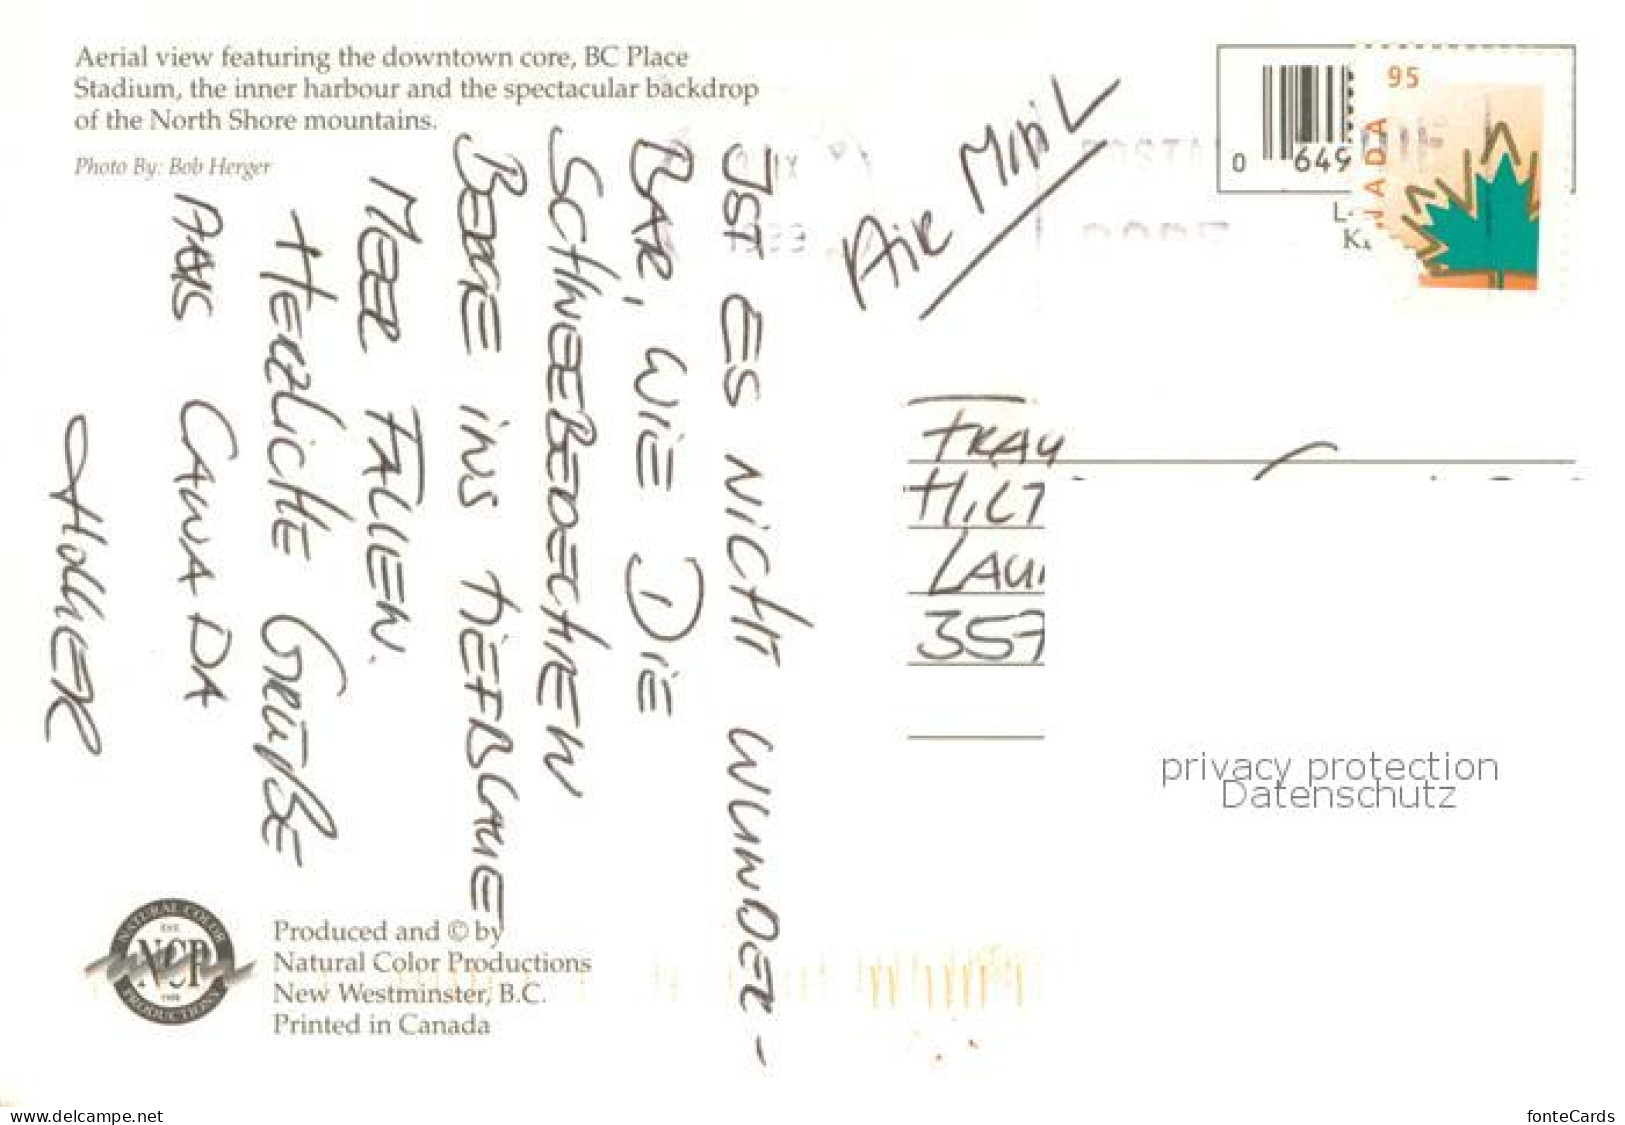 Aerial view featuring the downtown core, BC Place
Stadium, the inner harbour and the spectacular backdrop
of the North Shore mountains.
Photo By: Bob Herger
IST ES NICHT WUNDER-
BAR, WIE DIE
SCHNEEBEDECKTEN
BERGE INS TIEFBLAUE
MEER FALLEN.
HERZLICHE GRÜßE
AUS CANADA
HOLGER
AIR MAIL
0 649
95
CANADA
FRAU
HILT
LAU
357
privacy protection
Datenschutz
NATURAL COLOR
NCP
PRODUCTIONS
Produced and © by
Natural Color Productions
New Westminster, B.C.
Printed in Canada
www.delcampe.net
fonteCards